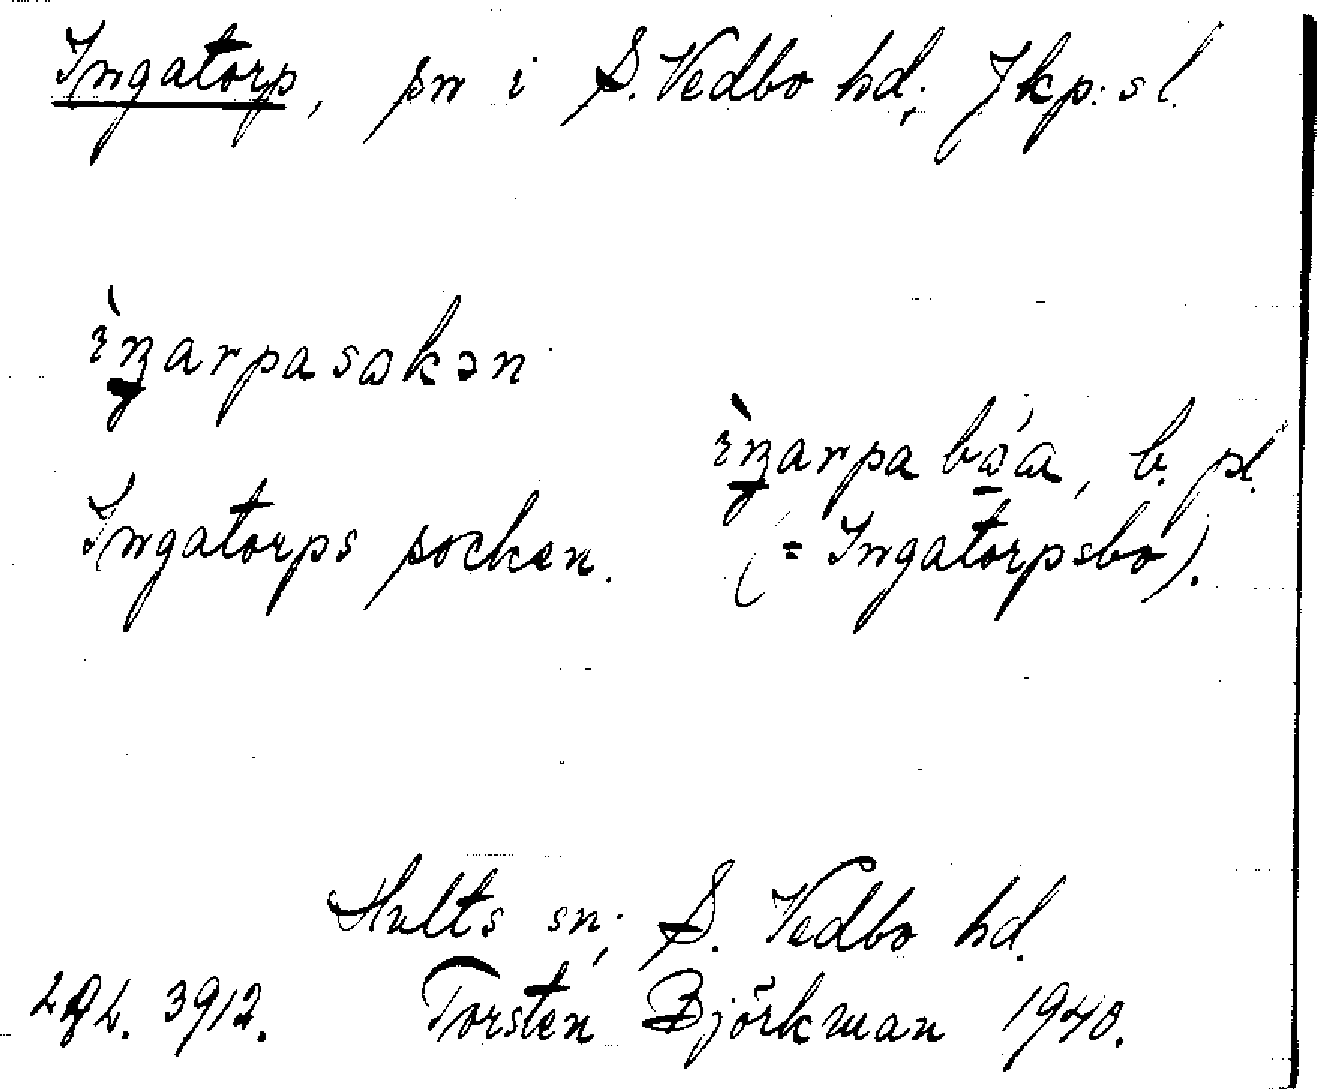 Ingatorp, sn i S. Vedbo hd; Jkp:s l.
ɪ̀ŋarpasɷkən
ɪ̀ŋarpabɷ́a, b. pl.
Ingatorps socken.
(= Ingatorpsbo).
Hults sn; S. Vedbo hd.
3912. Torsten Björkman 1940.